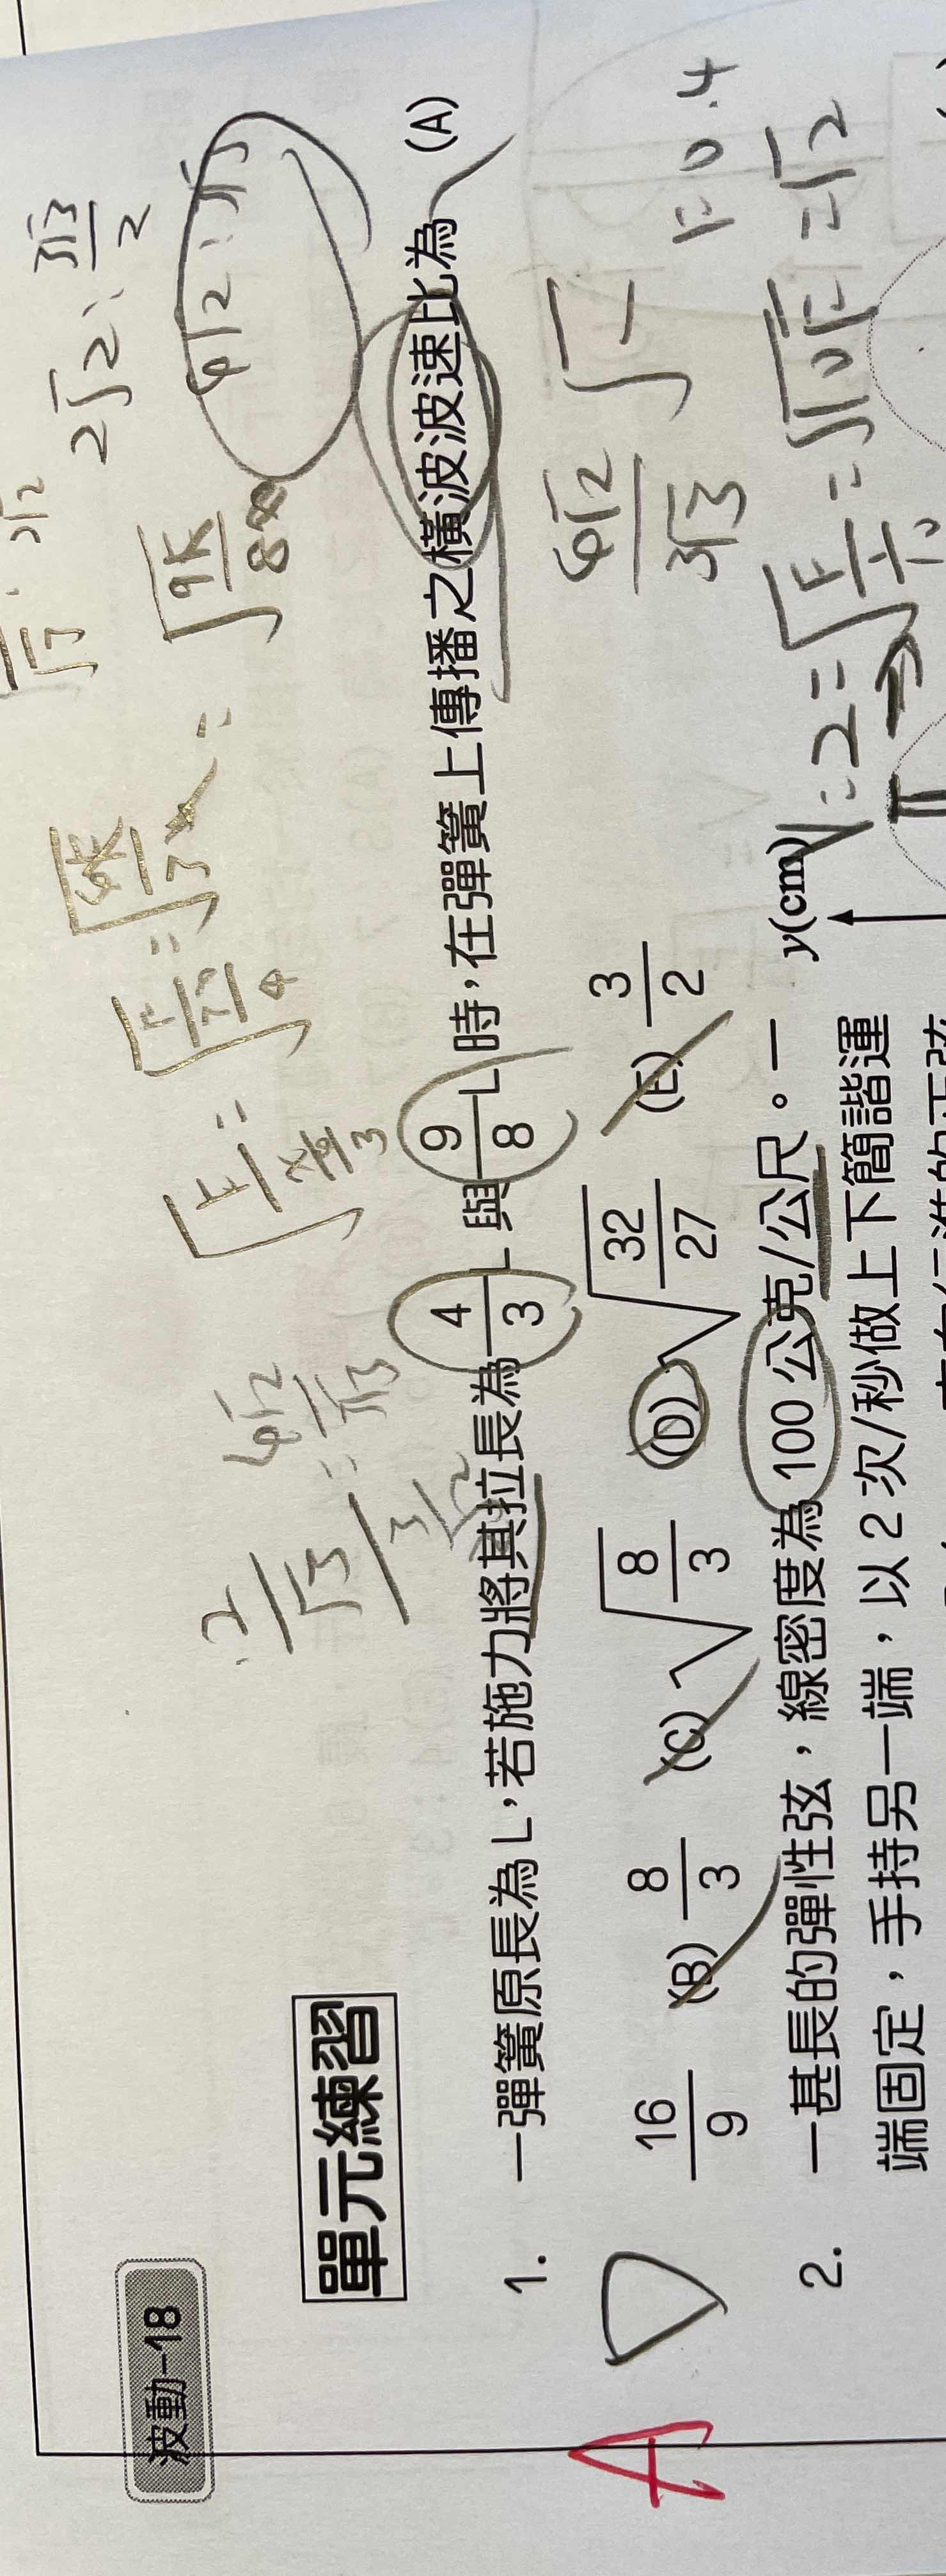 波動-18
單元練習
1. 一彈簧原長為 L,若施力將其拉長為 4/3 L 與 9/8 L 時,在彈簧上傳播之橫波波速比為 (A)
16/9 (B) 8/3 (C) √(8/3) (D) √(32/27) (E) 3/2
A D
2. 一甚長的彈性弦,線密度為 100 公克/公尺。一
端固定,手持另一端,以 2 次/秒做上下簡諧運
y(cm)
6√2 : 3√3
6√2/3√3
F=0.4